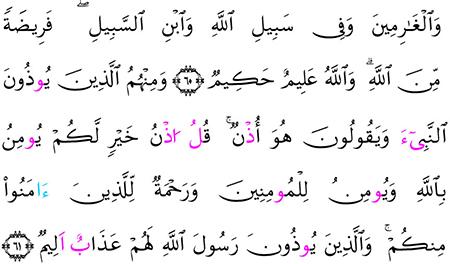 وَٱلْغَٰرِمِينَ وَفِى سَبِيلِ ٱللَّهِ وَٱبْنِ ٱلسَّبِيلِ ۖ فَرِيضَةٗ
مِّنَ ٱللَّهِ ۗ وَٱللَّهُ عَلِيمٌ حَكِيمٞ ٦٠ وَمِنْهُمُ ٱلَّذِينَ يُوذُونَ
ٱلنَّبِىٓءَ وَيَقُولُونَ هُوَ أُذْنٞ ۚ قُلُ اذْنُ خَيْرٖ لَّكُمْ يُومِنُ
بِٱللَّهِ وَيُومِنُ لِلْمُومِنِينَ وَرَحْمَةٞ لِّلَّذِينَ ءَامَنُوا۟
مِنكُمْ ۚ وَٱلَّذِينَ يُوذُونَ رَسُولَ ٱللَّهِ لَهُمْ عَذَابٌ اَلِيمٞ ٦١